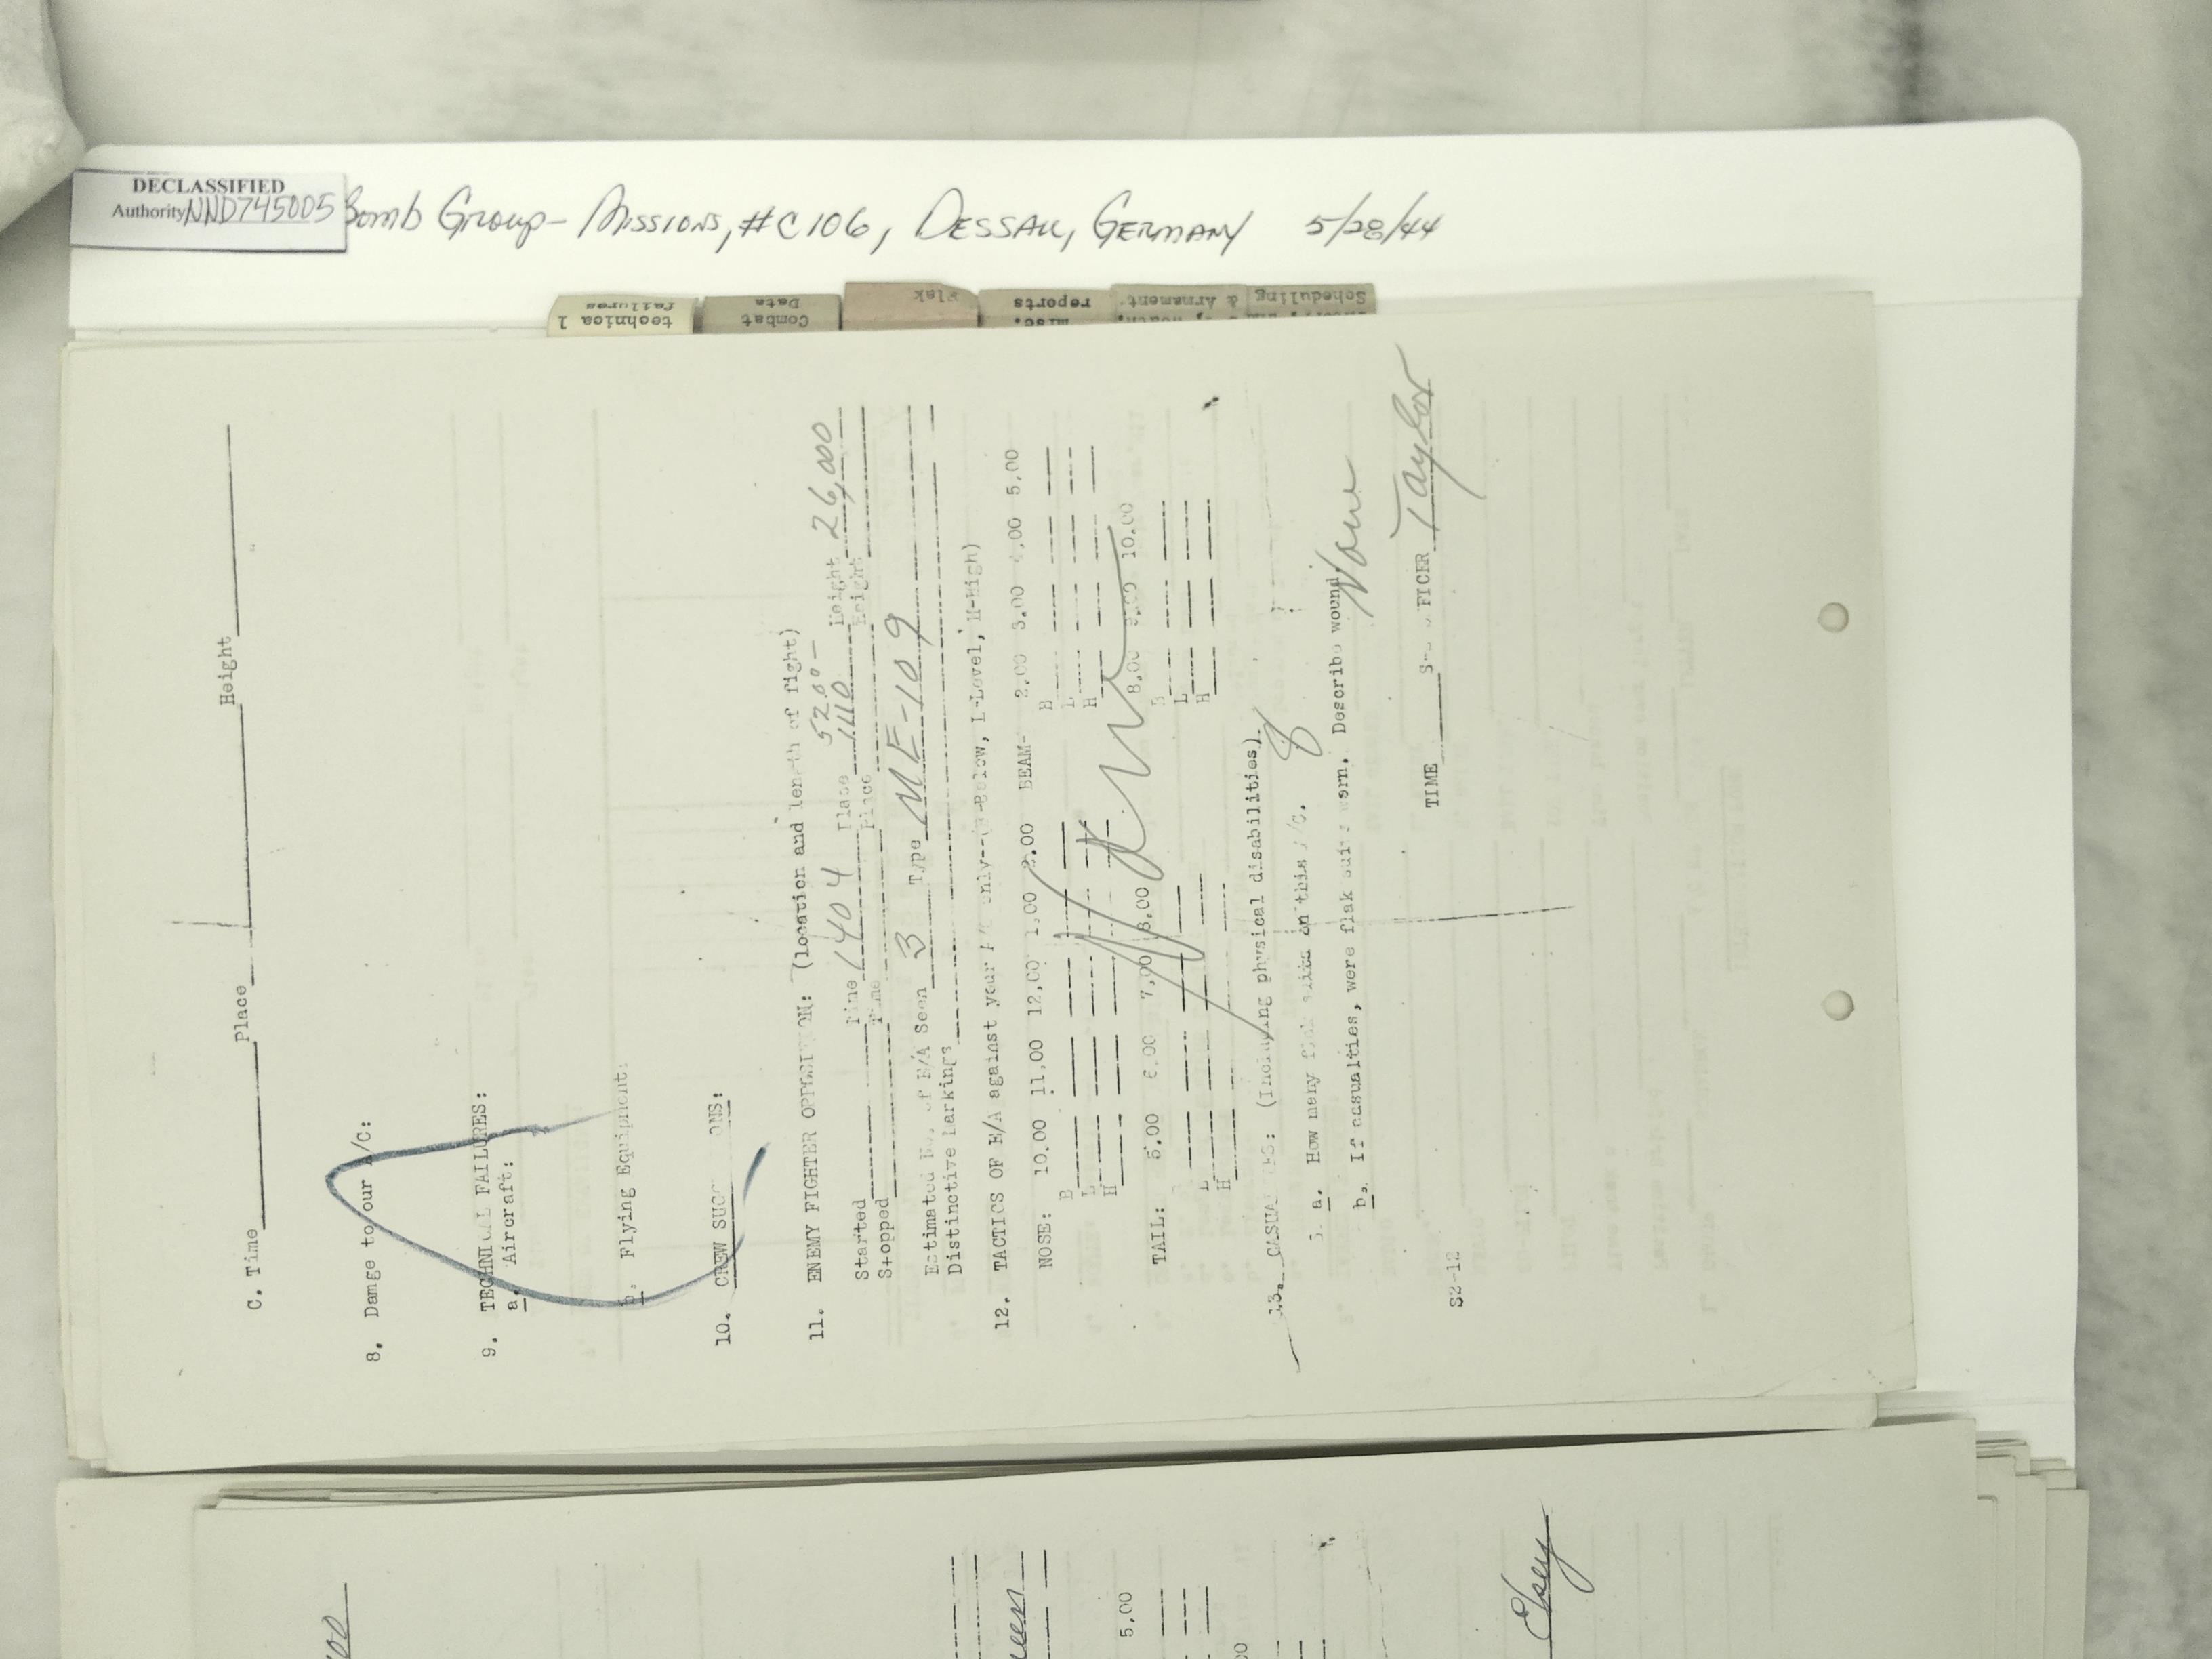 DECLASSIFIED
Authority NND745005
Bomb Group - Missions, #C106, Dessau, Germany 5/28/44
technical failures
Combat Data
Flak
misc. reports
& Armament.
Scheduling
C. Time Place Height
8. Damge to our A/C:
9. TECHNICAL FAILURES:
a. Aircraft:
b. Flying Equipment:
10. CREW SUGG ONS:
11. ENEMY FIGHTER OPPOSITION: (location and length of fight)
5200-
Started Time 1404 Place 1110 Height 26,000
Stopped Time Place Height
Estimated No. of E/A Seen 3 Type ME-109
Distinctive Markings
12. TACTICS OF E/A against your A/C only--(B-Below, L-Level, H-High)
NOSE: 10.00 11,00 12,00 1,00 2,00 BEAM- 2.00 3.00 4,00 5,00
B B
L L
H H
TAIL: 5,00 6,00 7,00 8,00 8,00 9,00 10,00
B B
L L
H H
13. CASUALTIES: (Including physical disabilities)
a. How meny flak suits on this A/C. 8
b. If casualties, were flak suits worn. Describe wound. None
TIME FICER Taylor
S2-12
5,00
Elsey